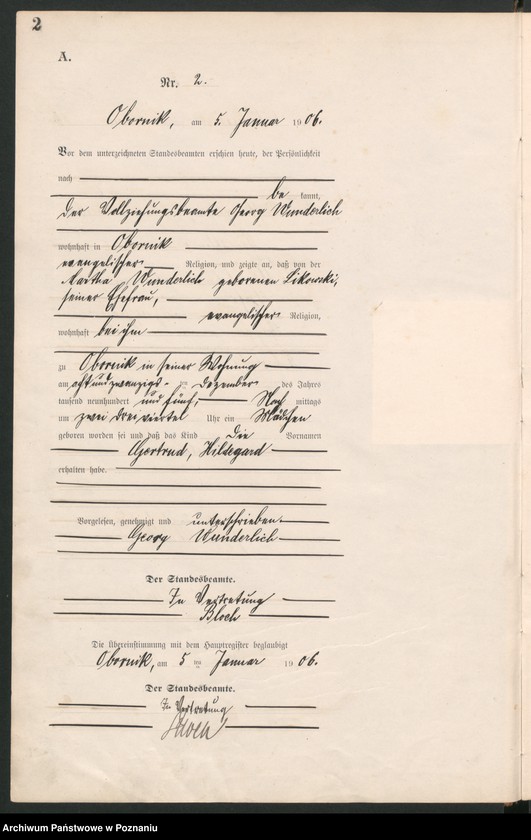 2
A.
Nr. 2.
Obornik, am 5. Januar 1906.
Vor dem unterzeichneten Standesbeamten erschien heute, der Persönlichkeit
nach
be kannt,
der Vollziehungsbeamte Georg Wunderlich
wohnhaft in Obornik
evangelischer Religion, und zeigte an, daß von der
Martha Wunderlich geborenen Likowski,
seiner Ehefrau,
evangelischer Religion,
wohnhaft bei ihm
zu Obornik in seiner Wohnung
am achtundzwanzigs-ten Dezember des Jahres
tausend neunhundert und fünf, Nach mittags
um zwei dreiviertel Uhr ein Mädchen
geboren worden sei und daß das Kind die Vornamen
Gertrud, Hildegard
erhalten habe.
Vorgelesen, genehmigt und unterschrieben
Georg Wunderlich
Der Standesbeamte.
In Vertretung
Bloch
Die Übereinstimmung mit dem Hauptregister beglaubigt
Obornik, am 5 ten Januar 1906.
Der Standesbeamte.
In Vertretung
Bloch
Archiwum Państwowe w Poznaniu